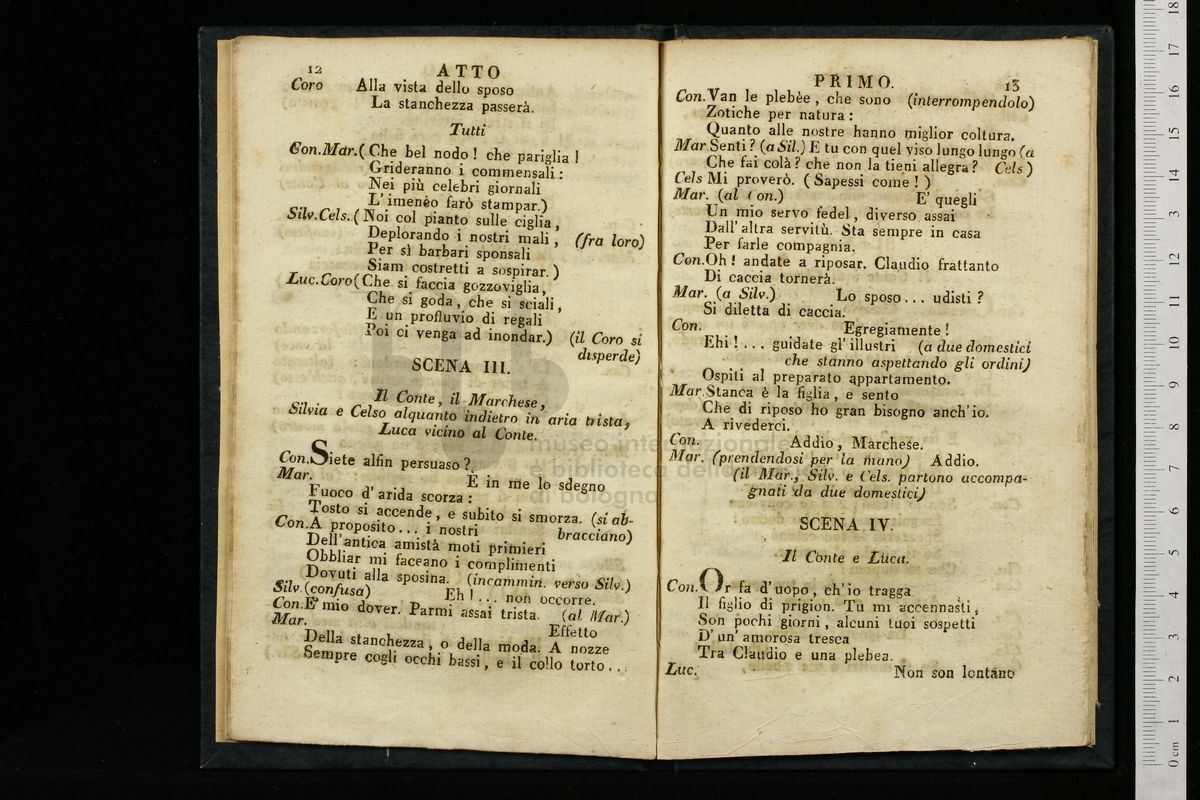 12 ATTO
Coro Alla vista dello sposo
La stanchezza passerà.
Tutti
Con.Mar.(Che bel nodo! che pariglia!
Grideranno i commensali:
Nei più celebri giornali
L'imenêo farò stampar.)
Silv.Cels.(Noi col pianto sulle ciglia,
Deplorando i nostri mali, (fra loro)
Per sì barbari sponsali
Siam costretti a sospirar.)
Luc.Coro(Che si faccia gozzoviglia,
Che si goda, che si sciali,
E un profluvio di regali
Poi ci venga ad inondar.) (il Coro si
disperde)
SCENA III.
Il Conte, il Marchese,
Silvia e Celso alquanto indietro in aria trista,
Luca vicino al Conte.
Con.Siete alfin persuaso?
Mar. E in me lo sdegno
Fuoco d'arida scorza:
Tosto si accende, e subito si smorza. (si ab-
Con.A proposito... i nostri bracciano)
Dell'antica amistà moti primieri
Obbliar mi faceano i complimenti
Dovuti alla sposina. (incammin. verso Silv.)
Silv.(confusa) Eh!... non occorre.
Con.E' mio dover. Parmi assai trista. (al Mar.)
Mar. Effetto
Della stanchezza, o della moda. A nozze
Sempre cogli occhi bassi, e il collo torto...
PRIMO. 13
Con.Van le plebèe, che sono (interrompendolo)
Zotiche per natura:
Quanto alle nostre hanno miglior coltura.
Mar Senti? (a Sil.) E tu con quel viso lungo lungo (a
Che fai colà? che non la tieni allegra? Cels)
Cels Mi proverò. (Sapessi come!)
Mar. (al Con.) E' quegli
Un mio servo fedel, diverso assai
Dall'altra servitù. Sta sempre in casa
Per farle compagnia.
Con.Oh! andate a riposar. Claudio frattanto
Di caccia tornerà.
Mar. (a Silv.) Lo sposo... udisti?
Si diletta di caccia.
Con. Egregiamente!
Ehi!... guidate gl'illustri (a due domestici
che stanno aspettando gli ordini)
Ospiti al preparato appartamento.
Mar.Stanca è la figlia, e sento
Che di riposo ho gran bisogno anch'io.
A rivederci.
Con. Addio, Marchese.
Mar. (prendendosi per la mano) Addio.
(il Mar., Silv. e Cels. partono accompa-
gnati da due domestici)
SCENA IV.
Il Conte e Luca.
Con.Or fa d'uopo, ch'io tragga
Il figlio di prigion. Tu mi accennasti,
Son pochi giorni, alcuni tuoi sospetti
D'un'amorosa tresca
Tra Claudio e una plebea.
Luc. Non son lontano
museo internazionale
e biblioteca della musica
di bologna
0 cm 1 2 3 4 5 6 7 8 9 10 11 12 13 14 15 16 17 18